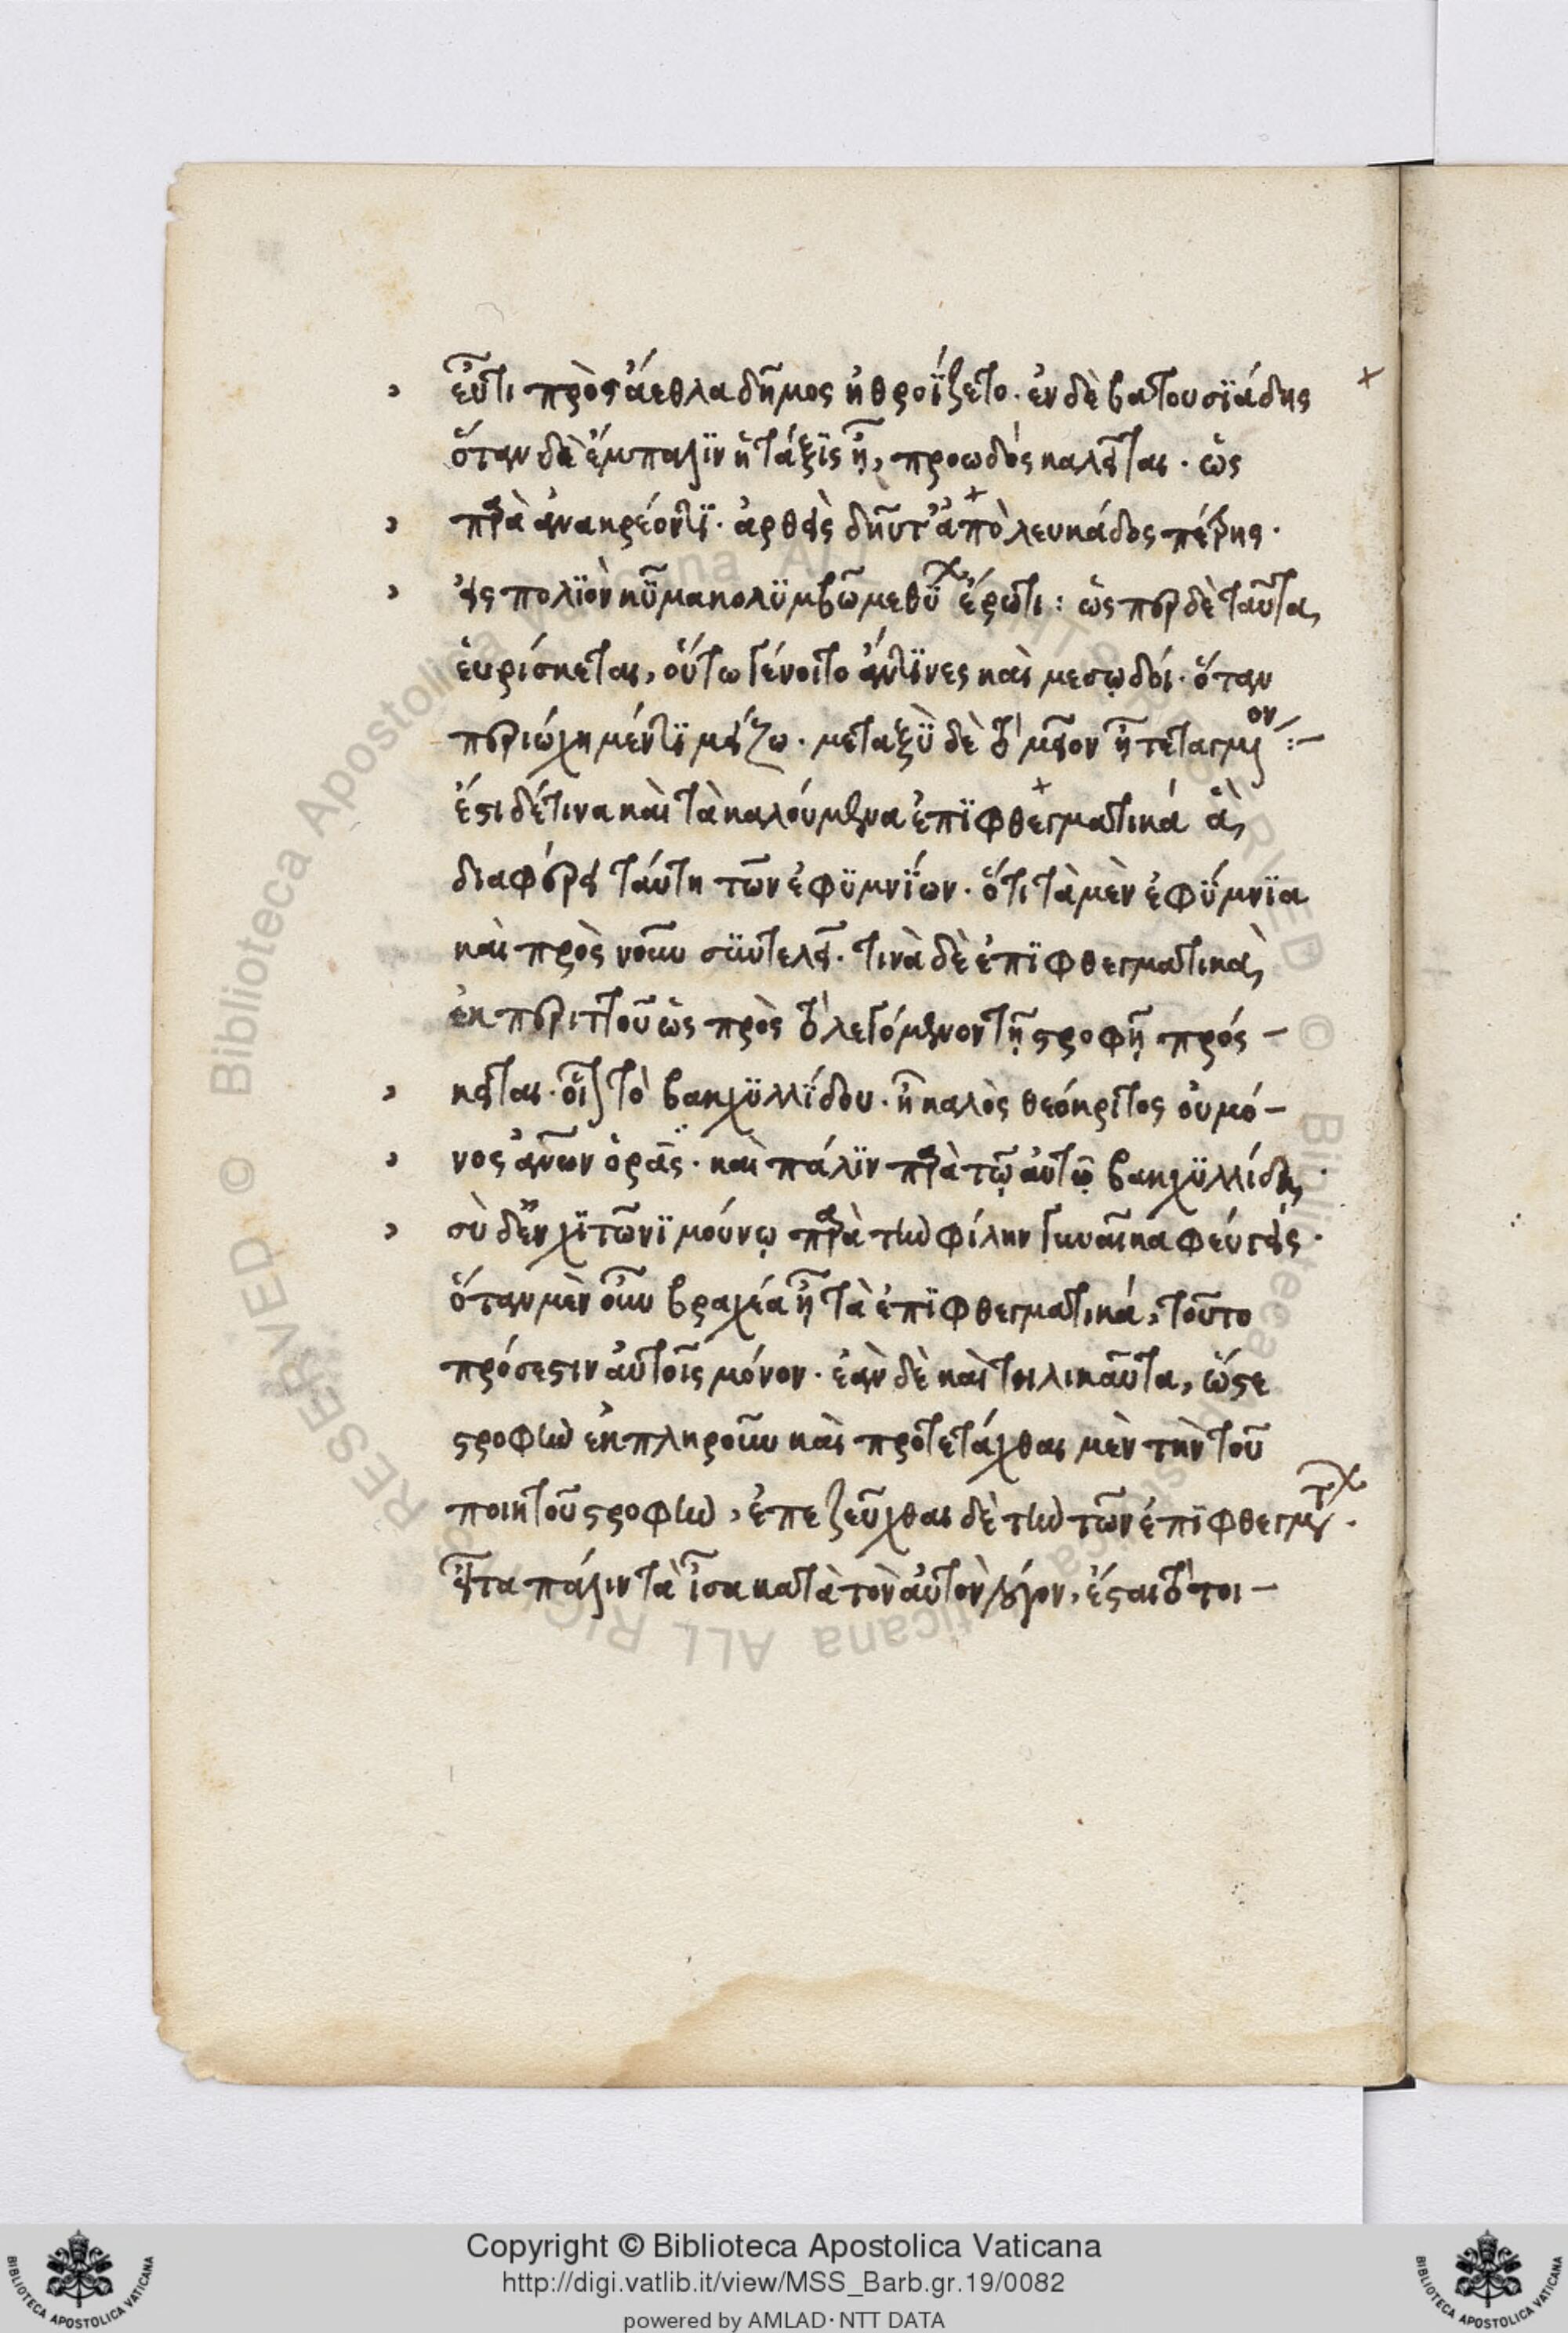 εὖτι πρὸς ἄεθλα δῆμος ἠθροΐζετο· ἐν δὲ βατουσϊάδης
ὅταν δὲ ἔμπαλϊν ἡ τάξϊς ᾖ, προωδὸς καλεῖται· ὡς
παρὰ ἀνακρέοντϊ· ἀρθεὶς δηῦτ' ἀπὸ λευκάδος πέτρης·
εἰς πολϊὸν κῦμα κολϋμβῶ μεθύ ἔρωτι: ὥσπερ δὲ ταῦτα,
εὑρίσκεται, οὕτω γένοιτο ἄν τϊνες καὶ μεσῳδοί· ὅταν
περιώχη μέν τϊ μείζω· μεταξϋ δὲ τὸ μεῖον ᾖ τεταγμένον :–
ἔστι δέ τινα καὶ τὰ καλούμενα ἐπϊφθεγματικά ἃ,
διαφέρει ταύτη τῶν ἐφϋμνΐων· ὅτι τὰ μὲν ἐφΰμνϊα
καὶ πρὸς νοῦν σϋντελεῖ· τινὰ δὲ ἐπϊφθεγματικὰ,
ἐκ περιττοῦ ὡς πρὸς τὸ λεγόμενον τῇ στροφῇ πρόσ–
κειται· οἷον τὸ βακχϋλλΐδου· ἦ καλὸς θεόκριτος οὐ μό–
νος ἀνθρώπων ὁρᾷς· καὶ πάλϊν παρὰ τῷ αὐτῷ βακχϋλλίδη,
σὺ δ' ἐν χϊτῶνϊ μούνῳ παρὰ τὴν φίλην γυναῖκα φεύγεις·
ὅταν μὲν οὖν βραχέα ᾖ τὰ ἐπϊφθεγματικά, τοῦτο
πρόσεστιν αὐτοῖς μόνον· ἐὰν δὲ καὶ τηλικαῦτα, ὥστε
στροφὴν ἐκπληροῦν καὶ προτετάχθαι μὲν τὴν τοῦ
ποιητοῦ στροφὴν, ἐπεζεῦχθαι δὲ τὴν τῶν ἐπϊφθεγματ.
εἶτα πάλιν τὰ ἶσα κατὰ τὸν αὐτὸν λόγον, ἔσται τὸ τοι–
Copyright © Biblioteca Apostolica Vaticana
http://digi.vatlib.it/view/MSS_Barb.gr.19/0082
powered by AMLAD · NTT DATA